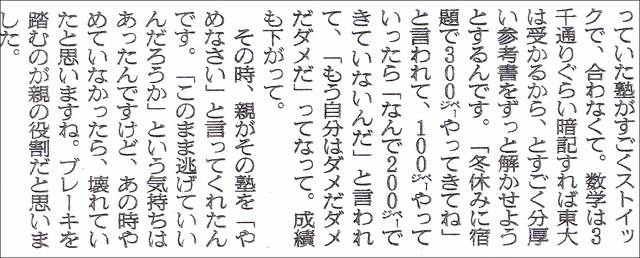 っていた塾がすごくストイッ
クで、合わなくて。数学は3
千通りぐらい暗記すれば東大
は受かるから、とすごく分厚
い参考書をずっと解かせよう
とするんです。「冬休みに宿
題で300㌻やってきてね」
と言われて、100㌻やって
いったら「なんで200㌻で
きていないんだ」と言われ
て、「もう自分はダメだダメ
だダメだ」ってなって。成績
も下がって。
その時、親がその塾を「や
めなさい」と言ってくれたん
です。「このまま逃げていい
んだろうか」という気持ちは
あったんですけど、あの時や
めていなかったら、壊れてい
たと思いますね。ブレーキを
踏むのが親の役割だと思いま
した。